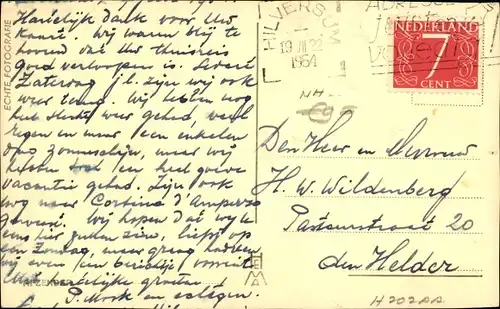 Hartelijk dank voor Uw
kaart. Wij waren blij te
hooren dat Uw thuisreis
goed verloopen is.
Zaterdag j.l. zijn wij ook
weer terug. Wij hebben nog
het slecht weer gehad, veel
regen en maar een enkelen
dag zonneschijn, maar wij
hebben toch een heel goede
vacantie gehad. Zijn ook
nog naar Cortina d'Ampezzo
geweest. Wij hopen dat wij U
eens hier zullen zien, liefst op
een Zondag, maar graag hadden
wij even een berichtje vooruit
Met hartelijke groeten
P. Mook en echtgen.
AFZENDER
ECHTE FOTOGRAFIE
HILVERSUM
1964
NEDERLAND
7
CENT
NH
Den Heer en Mevrouw
H. W. Wildenberg
Pasteurstraat 20
den Helder
H202AA